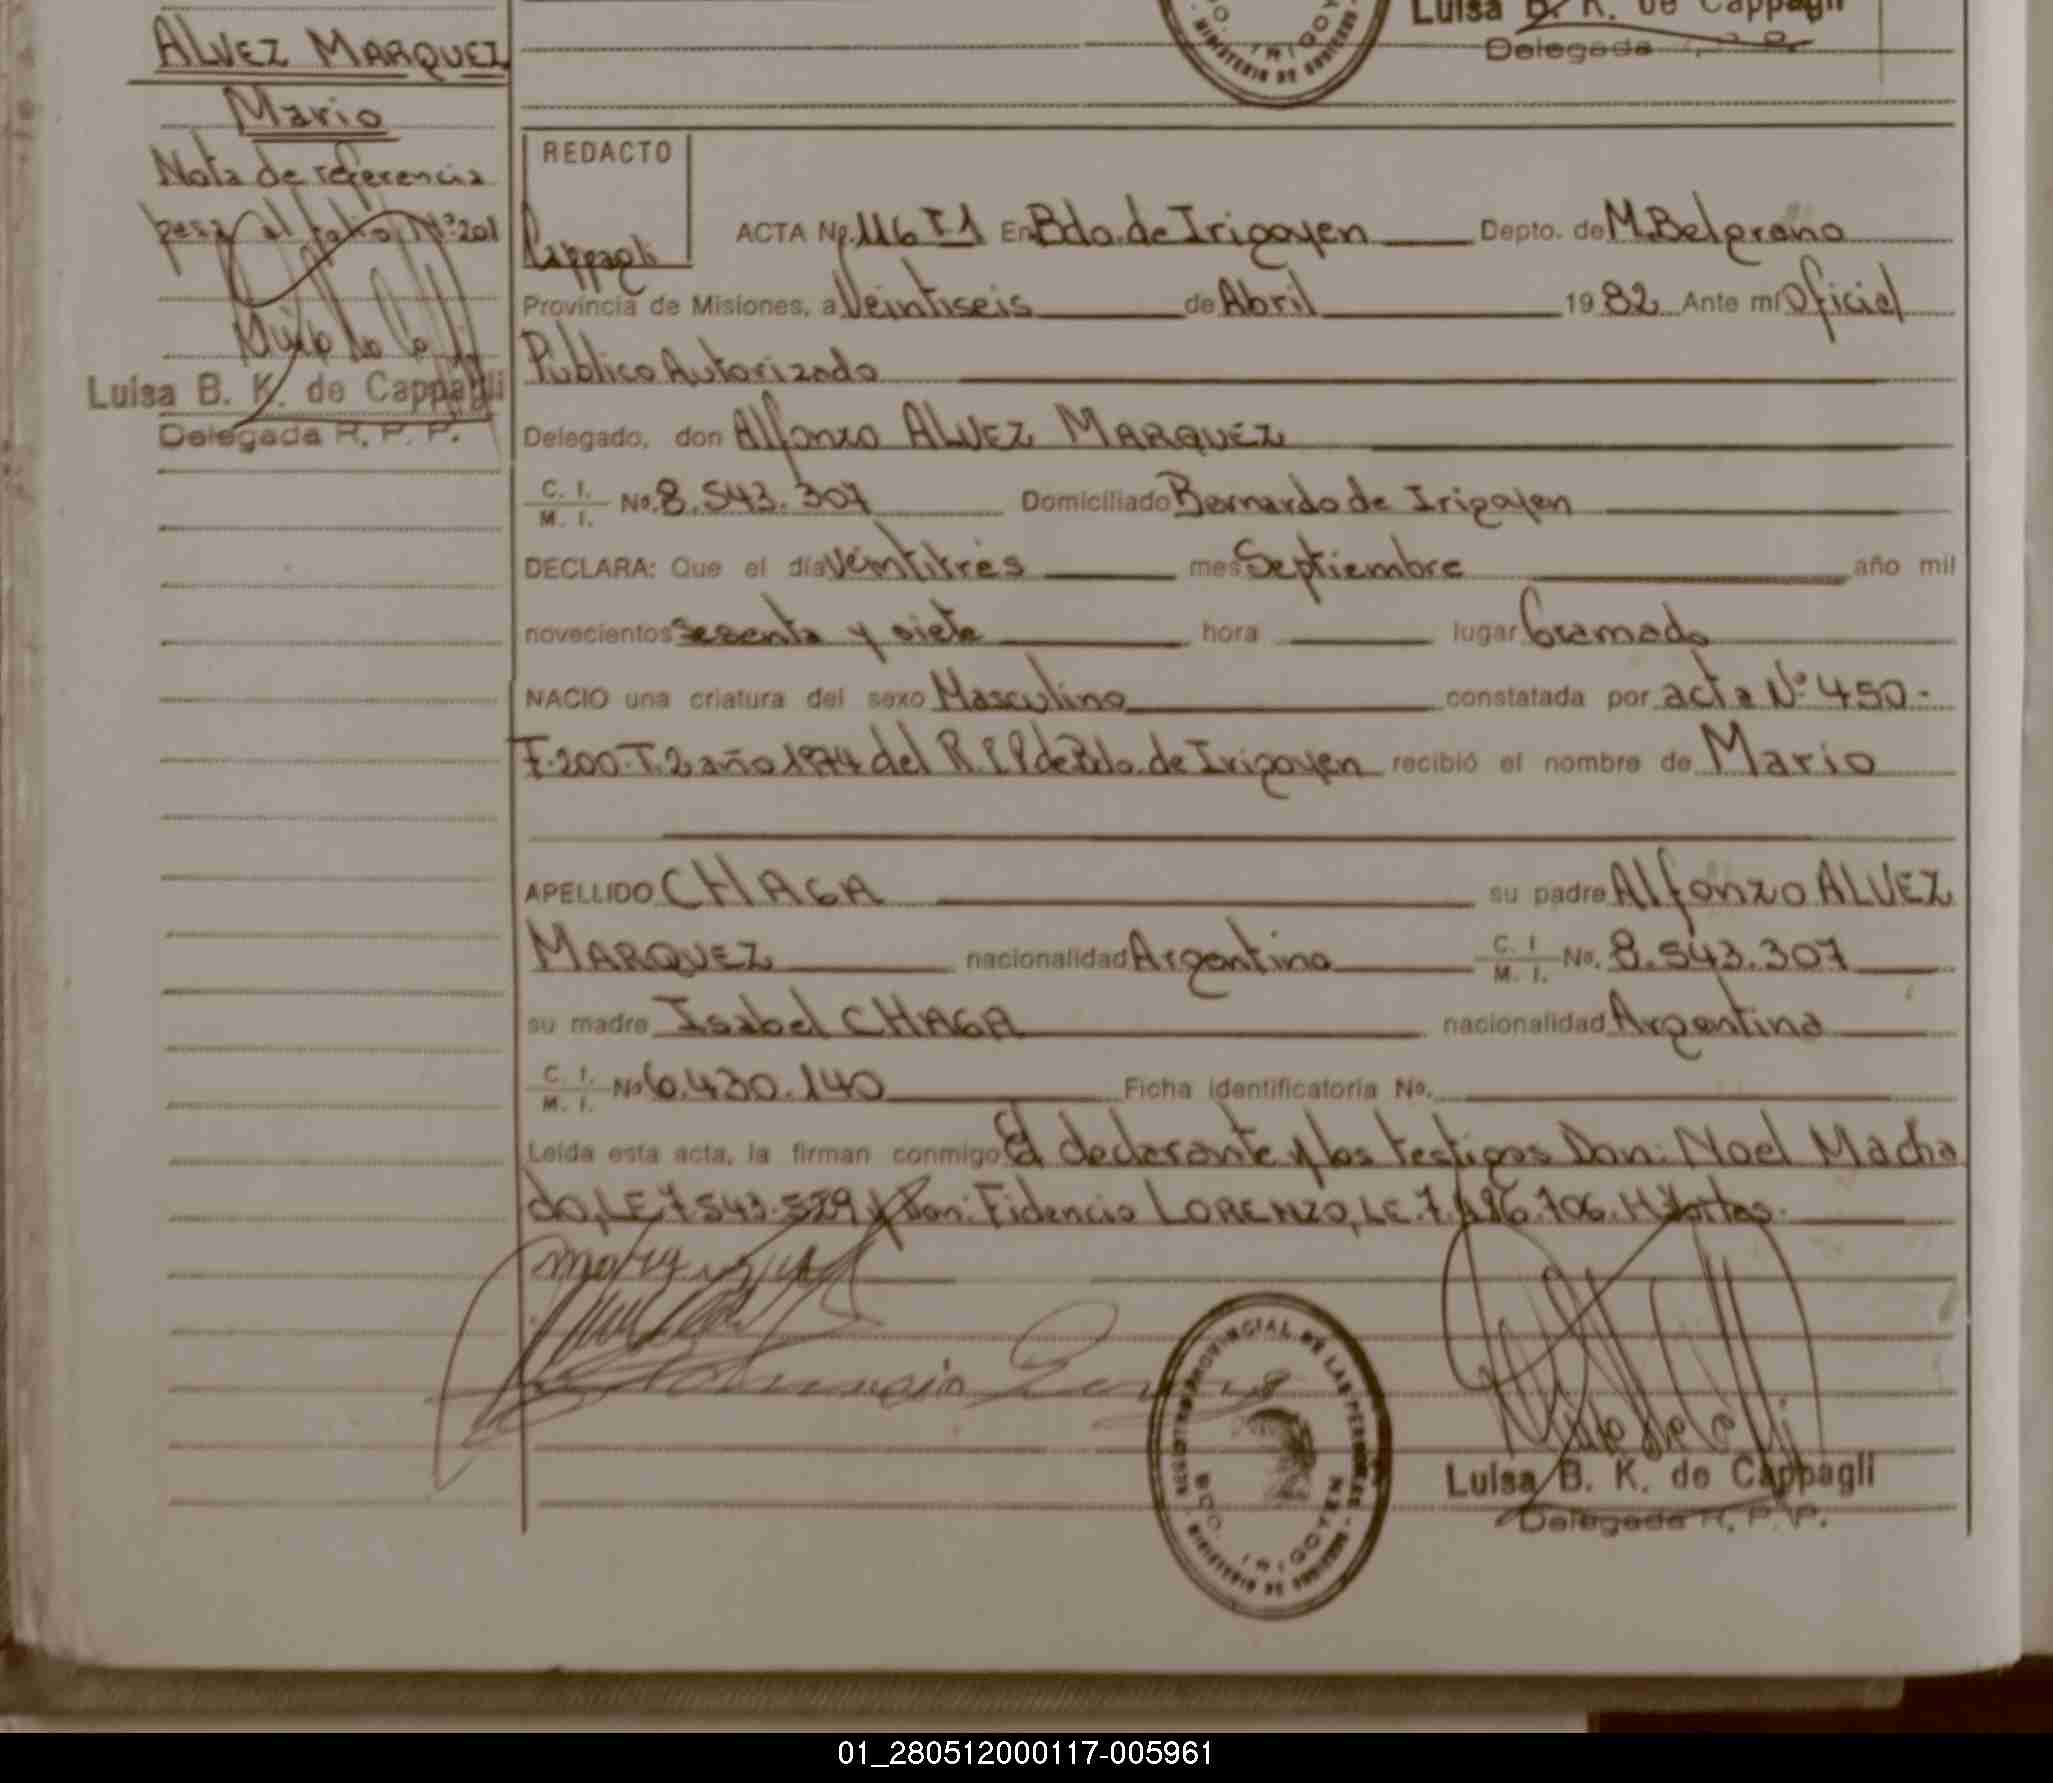 Luisa B. K. de Cappagli
Delegada R. P. P.
BDO. IRIGOYEN
MINISTERIO DE GOBIERNO
ALVEZ MARQUEZ
Mario
Nota de referencia
pasa al folio Nº 201
Luisa B. K. de Cappagli
Delegada R. P. P.
REDACTO
Cappagli
ACTA No. 116 T1 En Bdo. de Irigoyen Depto. de M. Belgrano
Provincia de Misiones, a Veintiseis de Abril 1982 Ante mi Oficial
Público Autorizado
Delegado, don Alfonzo ALVEZ MARQUEZ
C. I. M. I. No. 8.543.307 Domiciliado Bernardo de Irigoyen
DECLARA: Que el día Veintitres mes Septiembre año mil
novecientos sesenta y siete hora lugar Gramado
NACIO una criatura del sexo Masculino constatada por acta Nº 450-
F.200-T.2 año 1974 del R.P.P de Bdo. de Irigoyen recibió el nombre de Mario
APELLIDO CHAGA su padre Alfonzo ALVEZ
MARQUEZ nacionalidad Argentina C. I. M. I. No. 8.543.307
su madre Isabel CHAGA nacionalidad Argentina
C. I. M. I. No 6.430.140 Ficha identificatoria No.
Leída esta acta, la firman conmigo El declarante y los testigos Don: Noel Macha
do, LE 7.543.529 y Don: Fidencio LORENZO, LE. 7.486.706.
REGISTRO PROVINCIAL DE LAS PERSONAS
BDO. IRIGOYEN
MINISTERIO DE GOBIERNO
Luisa B. K. de Cappagli
Delegada R. P. P.
01_280512000117-005961